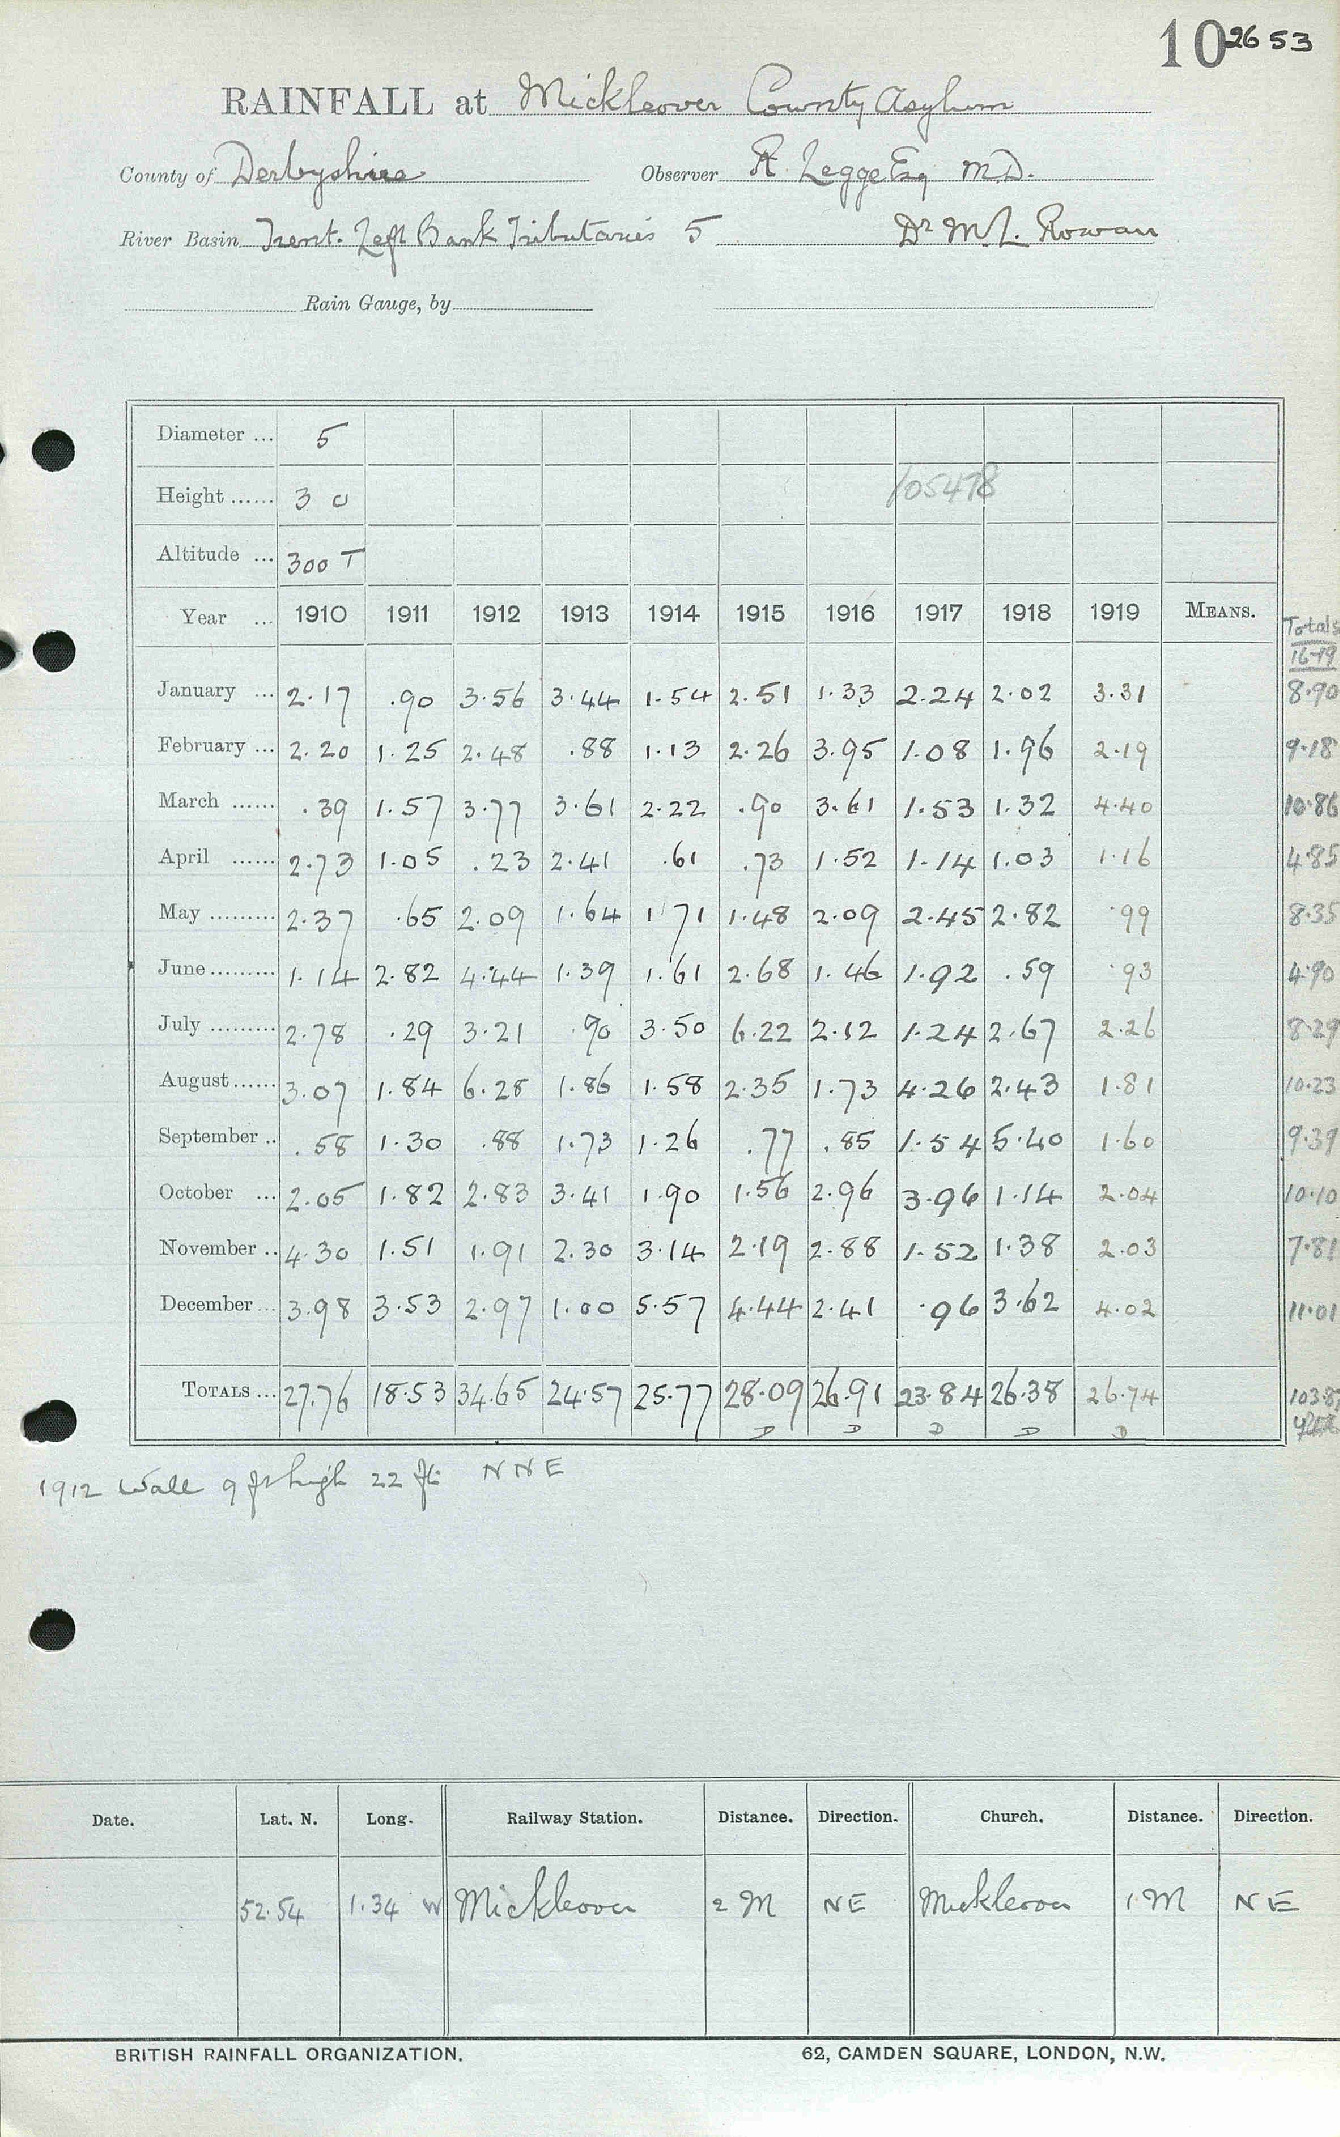 10 2653
RAINFALL at Mickleover County Asylum
County of Derbyshire Observer R. Legge Esq M.D.
River Basin Trent. Left Bank Tributaries 5 Dr M.L. Rowan
Rain Gauge, by
Diameter ... 5
Height ...... 3 0 105478
Altitude ... 300 T
Year ... 1910 1911 1912 1913 1914 1915 1916 1917 1918 1919 MEANS. Totals
16-19
January ... 2.17 .90 3.56 3.44 1.54 2.51 1.33 2.24 2.02 3.31 8.90
February ... 2.20 1.25 2.48 .88 1.13 2.26 3.95 1.08 1.96 2.19 9.18
March ...... .39 1.57 3.77 3.61 2.22 .90 3.61 1.53 1.32 4.40 10.86
April ...... 2.73 1.05 .23 2.41 .61 .73 1.52 1.14 1.03 1.16 4.85
May ......... 2.37 .65 2.09 1.64 1.71 1.48 2.09 2.45 2.82 .99 8.35
June ......... 1.14 2.82 4.44 1.39 1.61 2.68 1.46 1.92 .59 .93 4.90
July ......... 2.78 .29 3.21 .90 3.50 6.22 2.12 1.24 2.67 2.26 8.29
August ...... 3.07 1.84 6.28 1.86 1.58 2.35 1.73 4.26 2.43 1.81 10.23
September .. .58 1.30 .88 1.73 1.26 .77 .85 1.54 5.40 1.60 9.39
October ... 2.05 1.82 2.83 3.41 1.90 1.56 2.96 3.96 1.14 2.04 10.10
November .. 4.30 1.51 1.91 2.30 3.14 2.19 2.88 1.52 1.38 2.03 7.81
December ... 3.98 3.53 2.97 1.00 5.57 4.44 2.41 .96 3.62 4.02 11.01
TOTALS ... 27.76 18.53 34.65 24.57 25.77 28.09 26.91 23.84 26.38 26.74 103.87
D D D D D
1912 Wall 9 ft high 22 ft NNE
Date. Lat. N. Long. Railway Station. Distance. Direction. Church. Distance. Direction.
52.54 1.34 W Mickleover 2 M NE Mickleover 1 M NE
BRITISH RAINFALL ORGANIZATION. 62, CAMDEN SQUARE, LONDON, N.W.